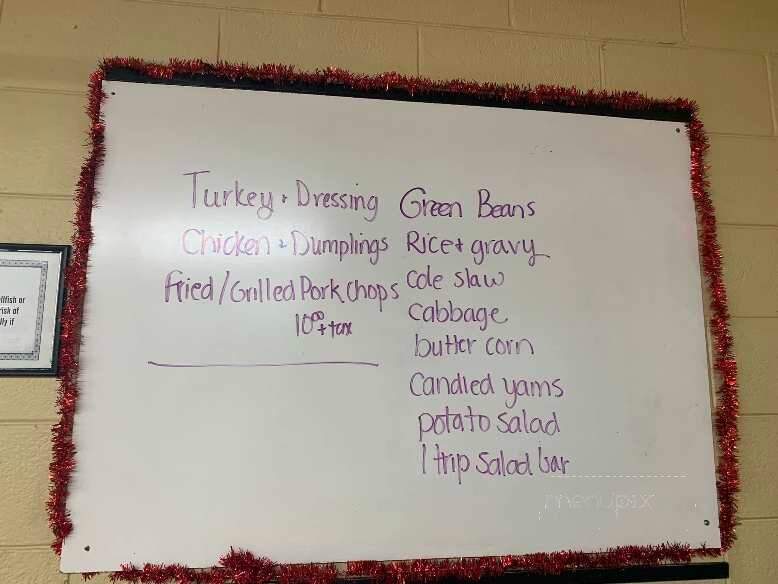 Turkey + Dressing
Chicken + Dumplings
Fried/Grilled Pork Chops
10⁰⁰ + tax
Green Beans
Rice + gravy
Cole slaw
Cabbage
butter corn
Candied yams
potato salad
1 trip salad bar
menupix
llfish or
risk of
lly if